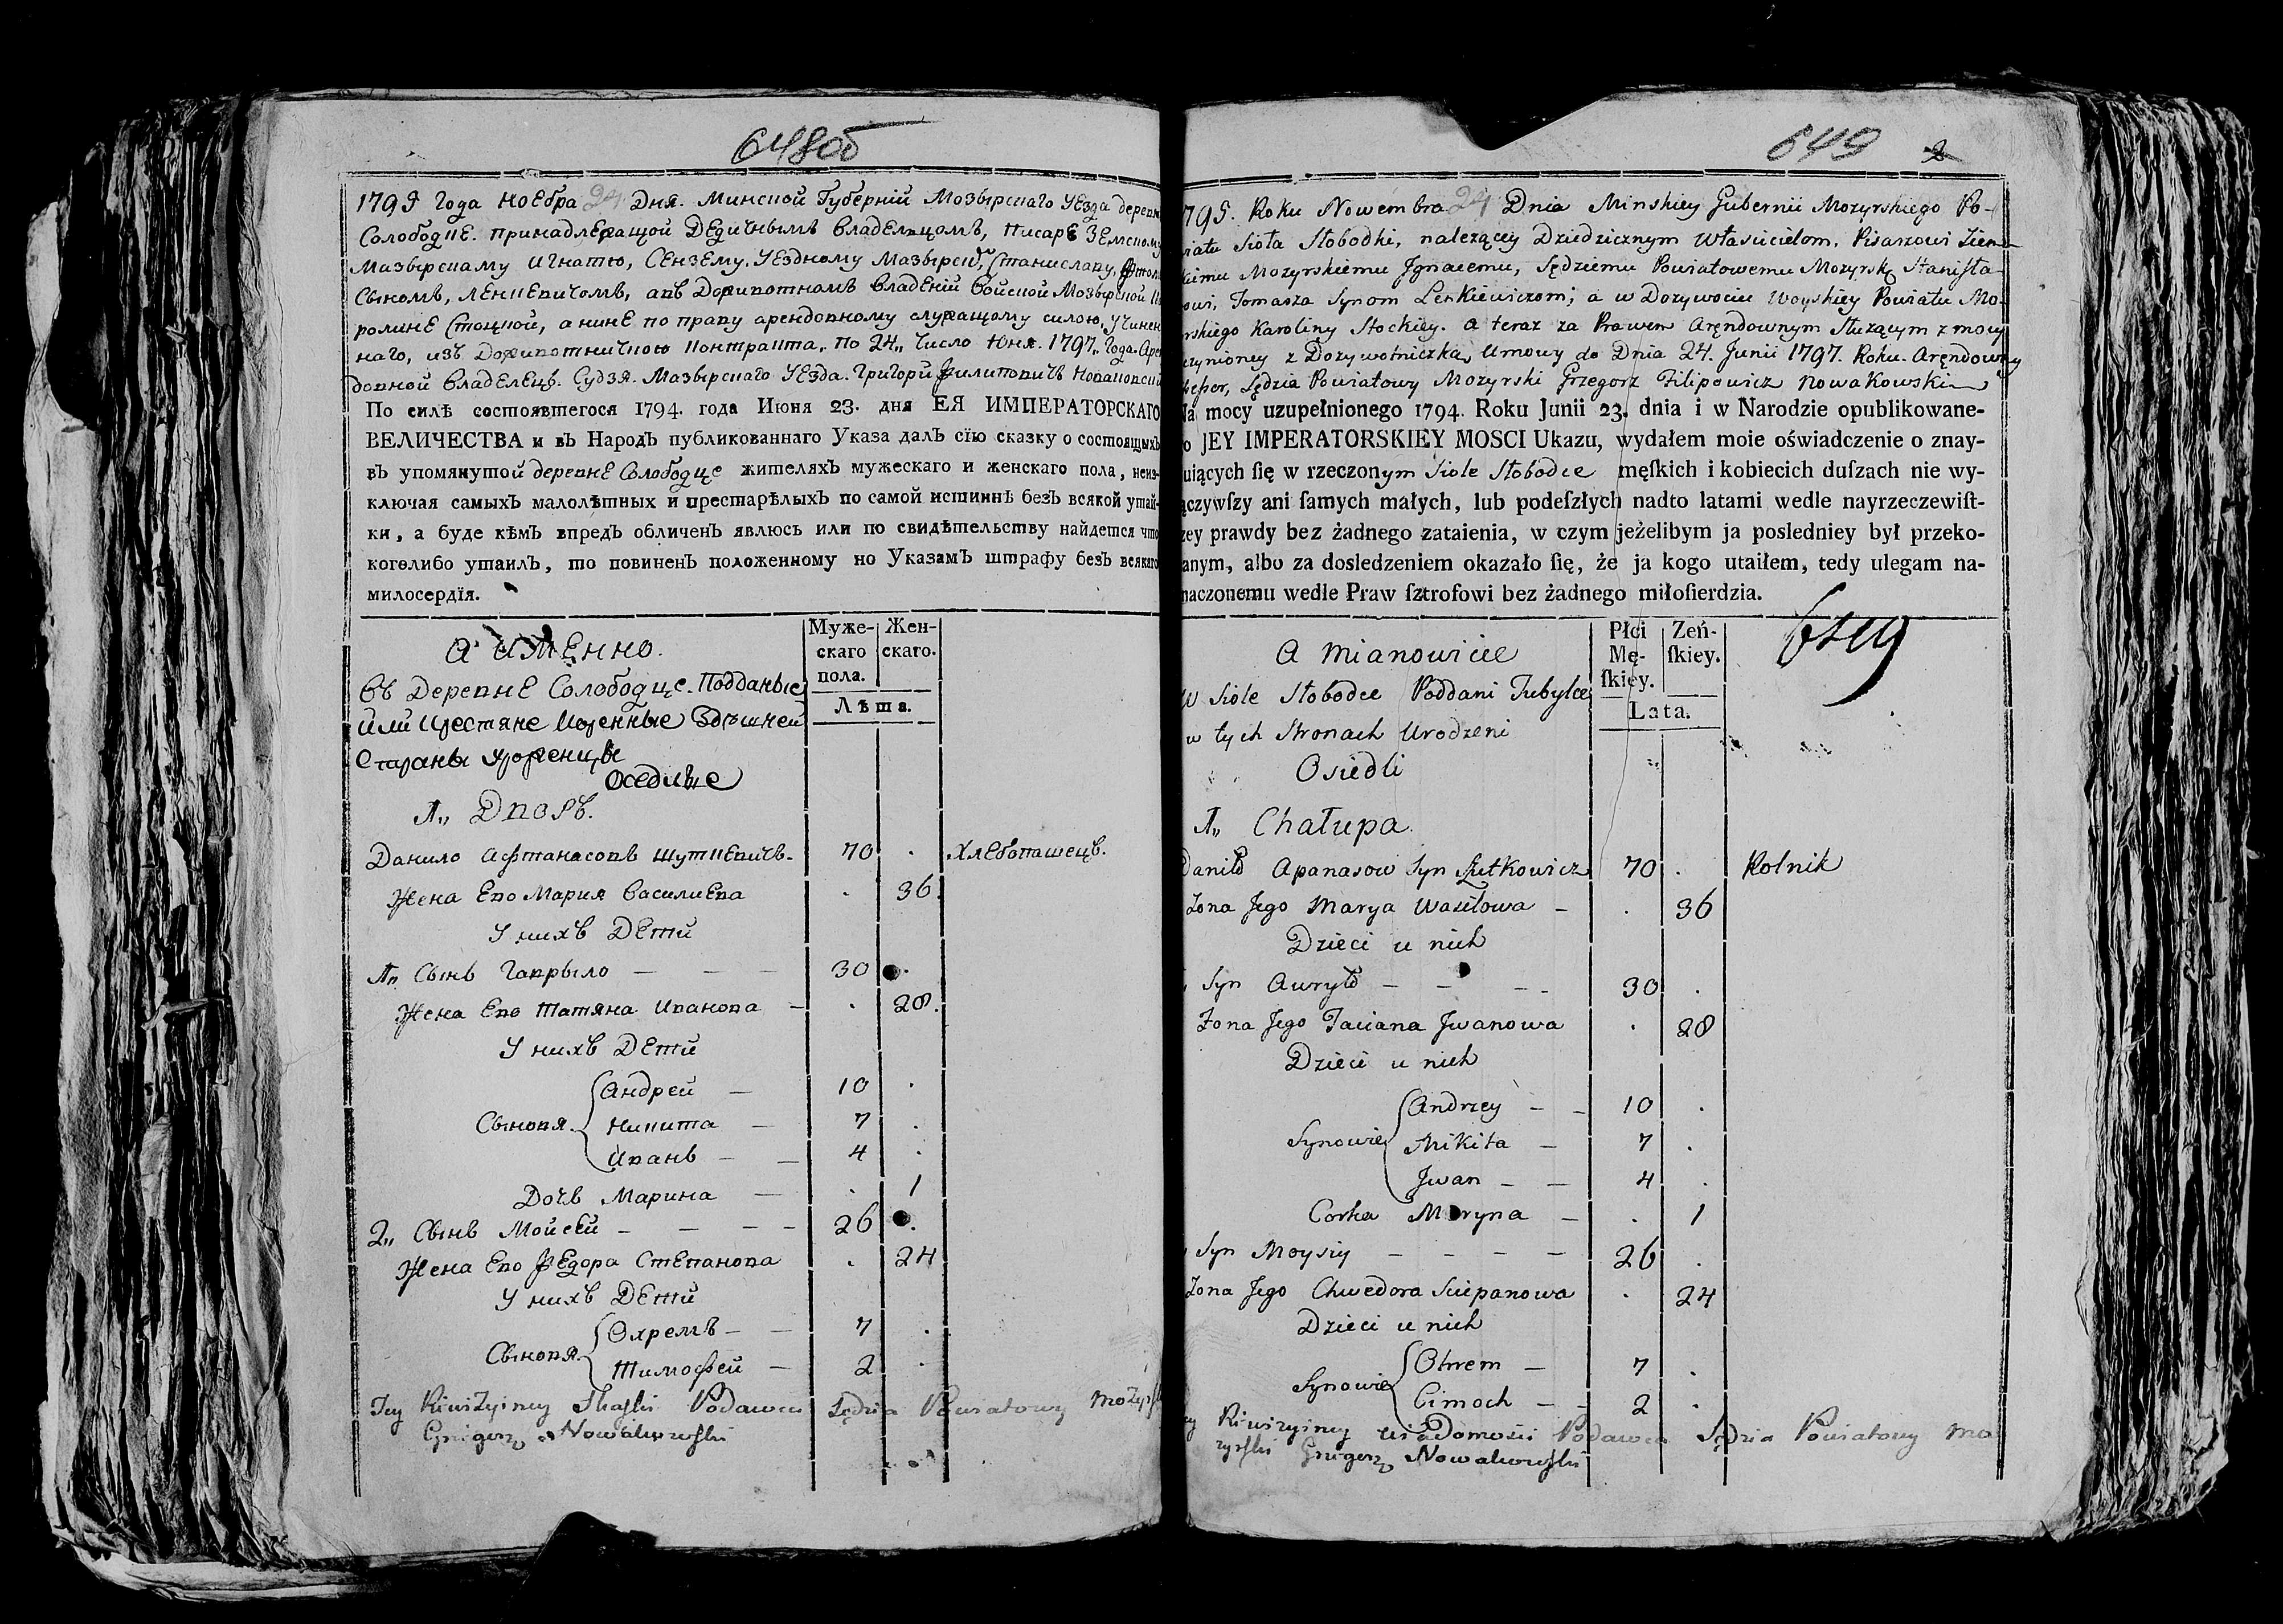 648об
1795 Года Ноебра 24 Дня. Минской Губернїй Мозырскаго Уезда дерев
Солободке. принадлежащой Дедичнымъ владельцомъ, Писаре Земском
Мазырскаму Игнатю, Сензему. Уездному Мазырск, Станиславу,
Сыномъ, Ленкевичомъ, авъ Доживотномъ владенїй Войской Мозырской
ролине Стоцкой, а нине по праву арендовному служащому силою, учинен
наго, изъ Доживотничкою контракта, по 24,, число Юня. 1797,, Года. Арен
довной владелецъ. Судзя. Мазырскаго Уезда. Григори Филиповичъ Новаковски
По силѣ состоявшегося 1794. года Июня 23. дня ЕЯ ИМПЕРАТОРСКАГО
ВЕЛИЧЕСТВА и въ Народъ публикованнаго Указа далъ сїю сказку о состоящыхъ
въ упомянутой деревне Солободце жителяхъ мужескаго и женскаго пола, неиз-
ключая самыхъ малолѣтных и престарѣлыхъ по самой истиннѣ безъ всякой утай-
ки, а буде кѣмъ впредъ обличенъ явлюсь или по свидѣтельству найдется что
коголибо утаилъ, то повиненъ положенному по Указамъ штрафу безъ всякаго
милосердїя.
А именно.
Муже-
скаго
пола.
Жен-
скаго.
Лѣта.
въ Деревне Солободце. Подданые
или Крестяне Коренные Здешней
Стараны Уроженцы
Оседлые
1,, Дворъ.
Данило Афтанасовъ Шуткевичъ. 70 . Хлебопашецъ.
Жена Ево Мария Василиева . 36.
У нихъ Дети
1,, Сынъ Гаврыло — — — 30 .
Жена Ево Татяна Иванова — . 28.
У нихъ Дети
Андрей — 10 .
Сыновя. Никита — 7 .
Иванъ — — 4 .
Дочъ Марина — . 1
2,, Сынъ Мойсей — — — — 26 .
Жена Ево Федора Степанова . 24
У нихъ Дети
Охремъ — — 7 .
Сыновя. Тимофей — 2 .
Tey Rewizyiney Skaski Podawca Sędzia Powiatowy Mozyrs
Grzegorz Nowakowski
649 2
795. Roku Nowembra 24 Dnia Minskiey Gubernii Mozyrskiego Po-
wiatu Sioła Słobodki, nalezącey Dziedzicznym Własicielom. Pisarzowi Ziem
kiemu Mozyrskiemu Jgnacemu, Sędziemu Powiatowemu Mozyrsk Stanisła-
owi, Tomasza Synom Lenkiewiczom; a w Dozywociu Woyskiey Powiatu Mo-
rskiego Karoliny Stockiey. a teraz za Prawem Aręndownym Słuzącym z mocy
czynioney z Dozywotniczką Umowy do Dnia 24. Junii 1797. Roku. Aręndowny
Sędzia Powiatowy Mozyrski Grzegorz Filipowicz Nowakowski
Na mocy uzupełnionego 1794. Roku Junii 23. dnia i w Narodzie opublikowane-
o JEY IMPERATORSKIEY MOSCI Ukazu, wydałem moie oświadczenie o znay-
uiących ſię w rzeczonym Siole Słobodce męſkich i kobiecich duſzach nie wy-
ączywſzy ani ſamych małych, lub podeſzłych nadto latami wedle nayrzeczewiſt-
zey prawdy bez żadnego zataienia, w czym jeżelibym ja posledniey był przeko-
anym, albo za dosledzeniem okazało ſię, że ja kogo utaiłem, tedy ulegam na-
naczonemu wedle Praw ſztrofowi bez żadnego miłoſierdzia.
A mianowicie
Płci
Mę-
ſkiey.
Zeń-
ſkiey.
Lata.
W Siole Słobodce Poddani Tubylce
w tych Stronach Urodzeni
Osiedli
1,, Chałupa.
Daniło Apanasow Syn Szutkowicz 70 . Rolnik
Zona Jego Marya Wasilowa — . 36
Dzieci u nich
Syn Awryło — — — — 30 .
Zona Jego Taciana Jwanowa . 28
Dzieci u nich
Andrzey — — 10 .
Synowie Mikita — 7 .
Jwan — — 4 .
Corka Maryna — . 1
Syn Moysiy — — — — 26 .
Zona Jego Chwedora Sciepanowa . 24
Dzieci u nich
Ohrem — 7 .
Synowie Cimoch — — 2 .
Rewizyiney wiadomosci Podawca Sędzia Powiatowy Mo
zyrski Grzegorz Nowakowski